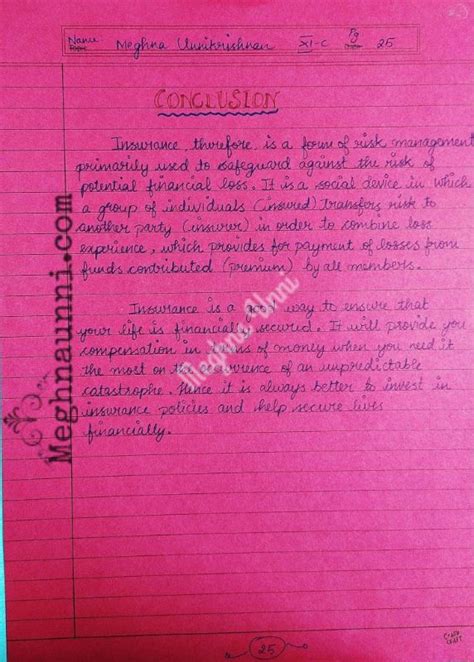 Name Meghna Unnikrishnan XI-C Pg 25
CONCLUSION
Insurance, therefore, is a form of risk management
primarily used to safeguard against the risk of
potential financial loss. It is a social device in which
a group of individuals (insured) transfers risk to
another party (insurer) in order to combine loss
experience, which provides for payment of losses from
funds contributed (premium) by all members.
Insurance is a good way to ensure that
your life is financially secured. It will provide you
compensation in terms of money when you need it
the most on the occurence of an unpredictable
catastrophe. Hence it is always better to invest in
insurance policies and help secure lives
financially.
25
Meghnaunni.com